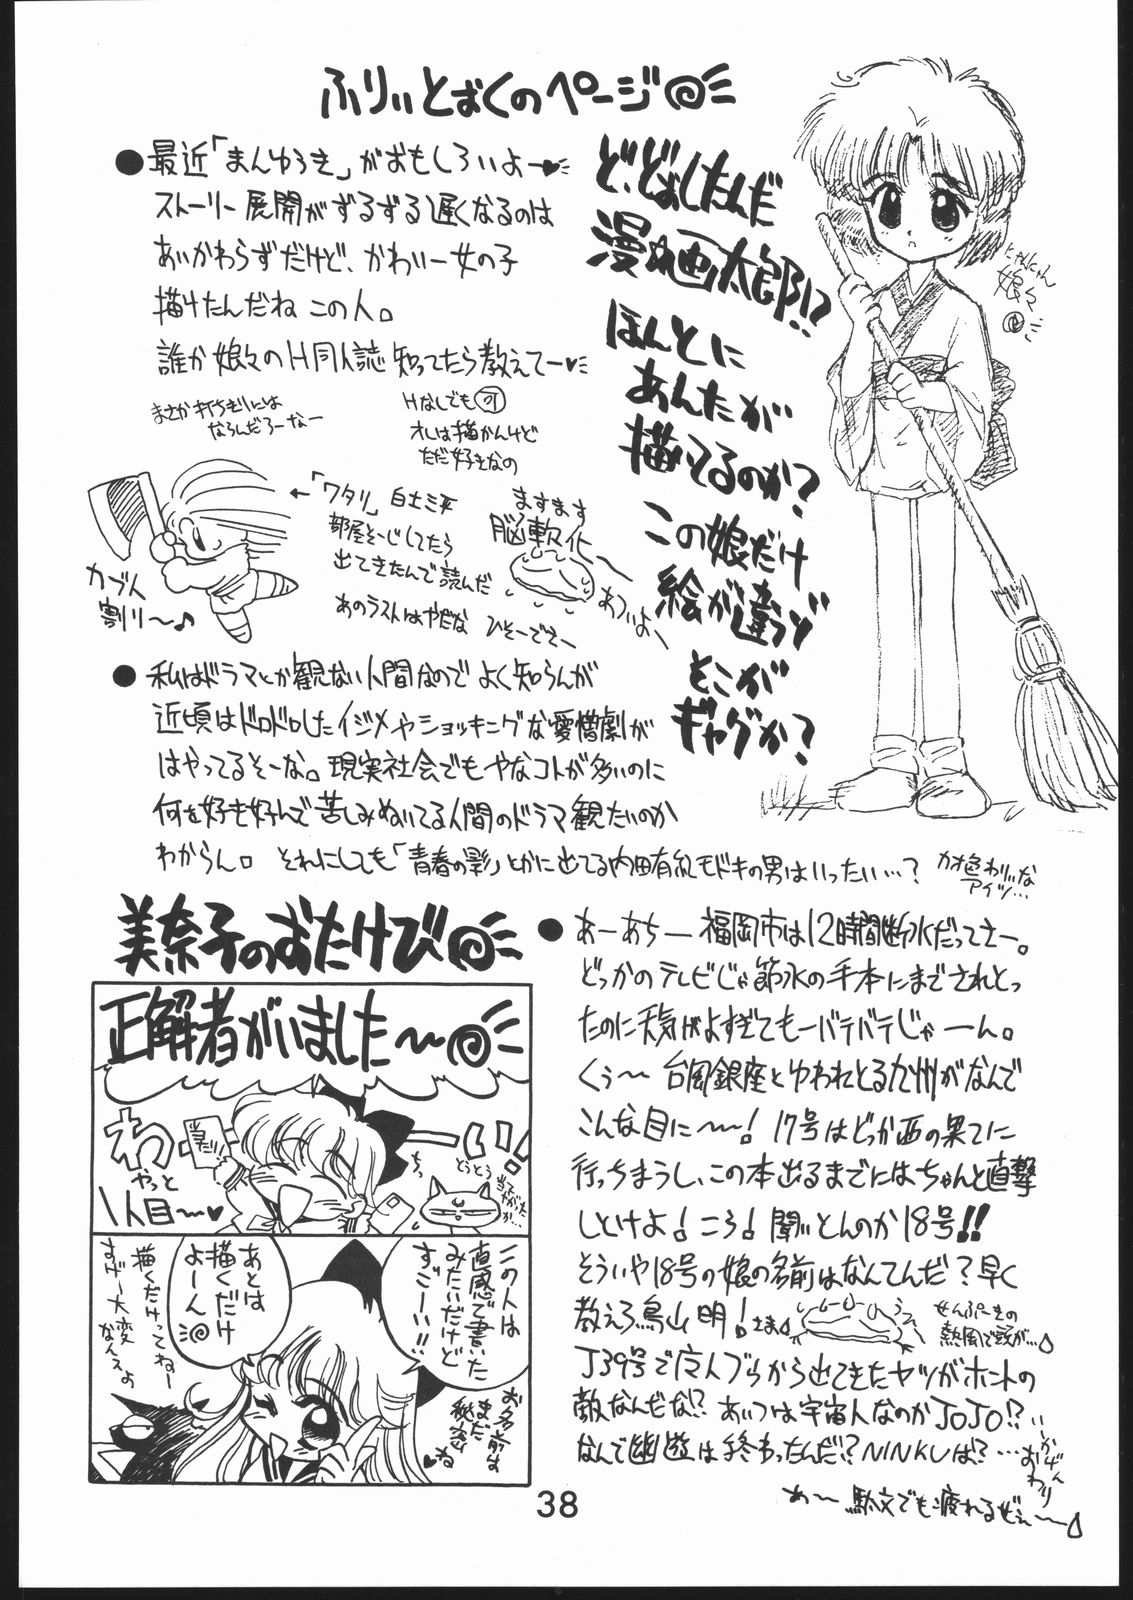 ふりぃとぉくのページ
●最近「まんゆうき」がおもしろいよー♥
ストーリー展開がずるずる遅くなるのは
あいかわらずだけど、かわいー女の子
描けたんだね この人。
誰か娘々のH同人誌知ってたら教えてー♥
まさか打ちきりには
ならんだろーなー
Hなしでも可
オレは描かんけど
ただ好きなの
ど、どぉしたんだ
漫☆画太郎!?
ほんとに
あんたが
描いてるのか?
この娘だけ
絵が違うゾ
そこが
ギャグか?
にゃんにゃん
娘々
←「ワタリ」白土三平
部屋そーじしてたら
出てきたんで読んだ
あのラストはやだな ひそーでさー
カブト
割り〜♪
ますます
脳軟化
あついよー
●私はドラマとか観ない人間なのでよく知らんが
近頃はドロドロしたイジメやショッキングな愛憎劇が
はやってるそーな。現実社会でもやなコトが多いのに
何を好き好んで苦しみぬいてる人間のドラマ観たいのか
わからん。それにしても「青春の影」とかに出てる内田有紀モドキの男はいったい…?
カオ色わりぃな
アイツ…
美奈子のおたけび
正解者がいました〜
わーい!
やっと
1人目〜♥
とうとう
この人は
直感で書いた
みたいだけど
すごーい!!
お名前は
まだ
秘密
ね♥
あとは
描くだけ
よーん
描くだけってねー
すげー大変
なんスよ
●あーあちー 福岡市は12時間断水だってさー。
どっかのテレビじゃ節水の手本にまでされとっ
たのに天気がよすぎてもーバテバテじゃーん。
くぅ〜 台風銀座とゆわれとる九州がなんで
こんな目に〜〜! 17号はどっか西の果てに
行っちまうし、この本出るまでにはちゃんと直撃
しといけよ! ころ! 聞いとんのか18号!!
そういや18号の娘の名前はなんてんだ?早く
教えろ鳥山明!さま
せんぷーきの
熱風で頭が…
J39号で広人ブらから出てきたヤツがホントの
敵なんだな!? あいつは宇宙人なのかJOJO!?
なんで幽遊は終わったんだ!? NINKUは?…
いかげん
おわり
あ〜 駄文でも疲れるぜぇ〜
38